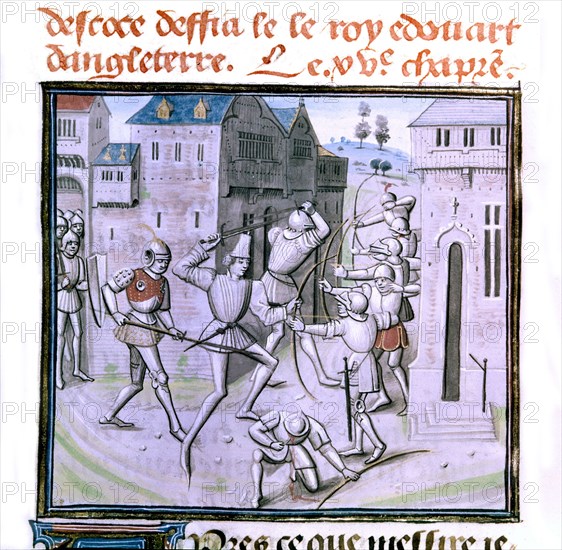 descoce deffia le le roy edouart
dangleterre. Le xve chaprẽ.
Apres ce que messire ie-
PHOTO12